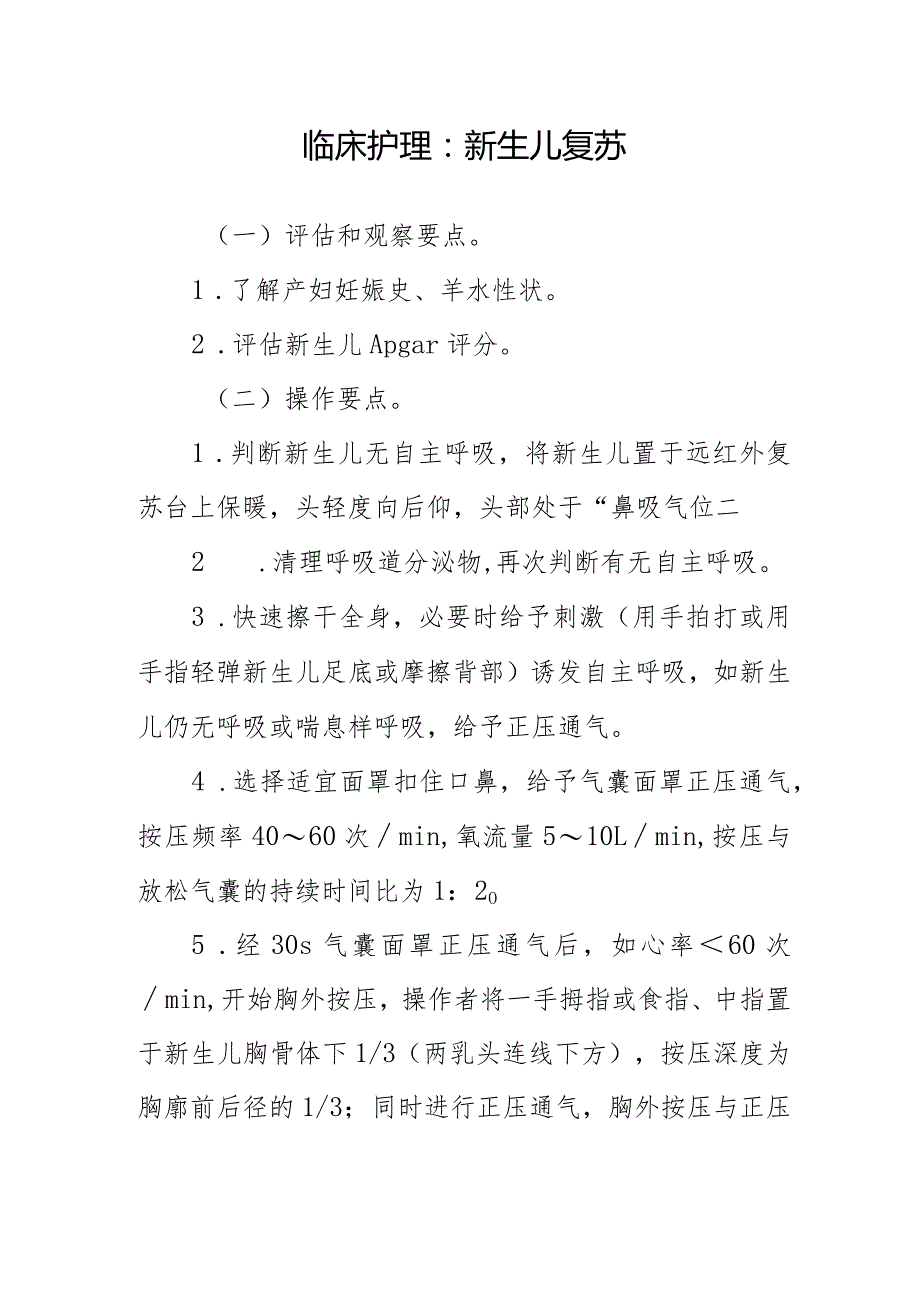 临床护理：新生儿复苏
（一）评估和观察要点。
1.了解产妇妊娠史、羊水性状。
2.评估新生儿Apgar评分。
（二）操作要点。
1.判断新生儿无自主呼吸，将新生儿置于远红外复
苏台上保暖，头轻度向后仰，头部处于“鼻吸气位二
2 .清理呼吸道分泌物,再次判断有无自主呼吸。
3.快速擦干全身，必要时给予刺激（用手拍打或用
手指轻弹新生儿足底或摩擦背部）诱发自主呼吸，如新生
儿仍无呼吸或喘息样呼吸，给予正压通气。
4.选择适宜面罩扣住口鼻，给予气囊面罩正压通气，
按压频率40～60次／min,氧流量5～10L／min,按压与
放松气囊的持续时间比为1：2₀
5.经30s气囊面罩正压通气后，如心率＜60次
／min,开始胸外按压，操作者将一手拇指或食指、中指置
于新生儿胸骨体下1/3（两乳头连线下方），按压深度为
胸廓前后径的1/3；同时进行正压通气，胸外按压与正压